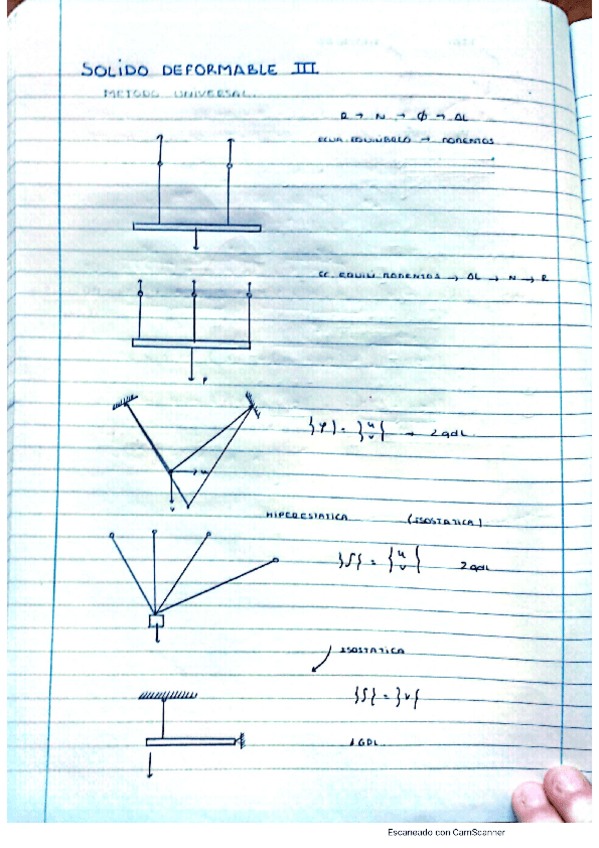 SOLIDO DEFORMABLE III
METODO UNIVERSAL.
R → N → Φ → ΔL
ECUA EQUILIBRIO → MOMENTOS
EC. EQUILI MOMENTOS → ΔL → N → R
P
{φ} = {u v} → 2 gdl.
u
v
HIPERESTATICA (ISOSTATICA)
{δ} = {u v} 2 gdl
ISOSTATICA
{δ} = {v}
1 GDL
Escaneado con CamScanner